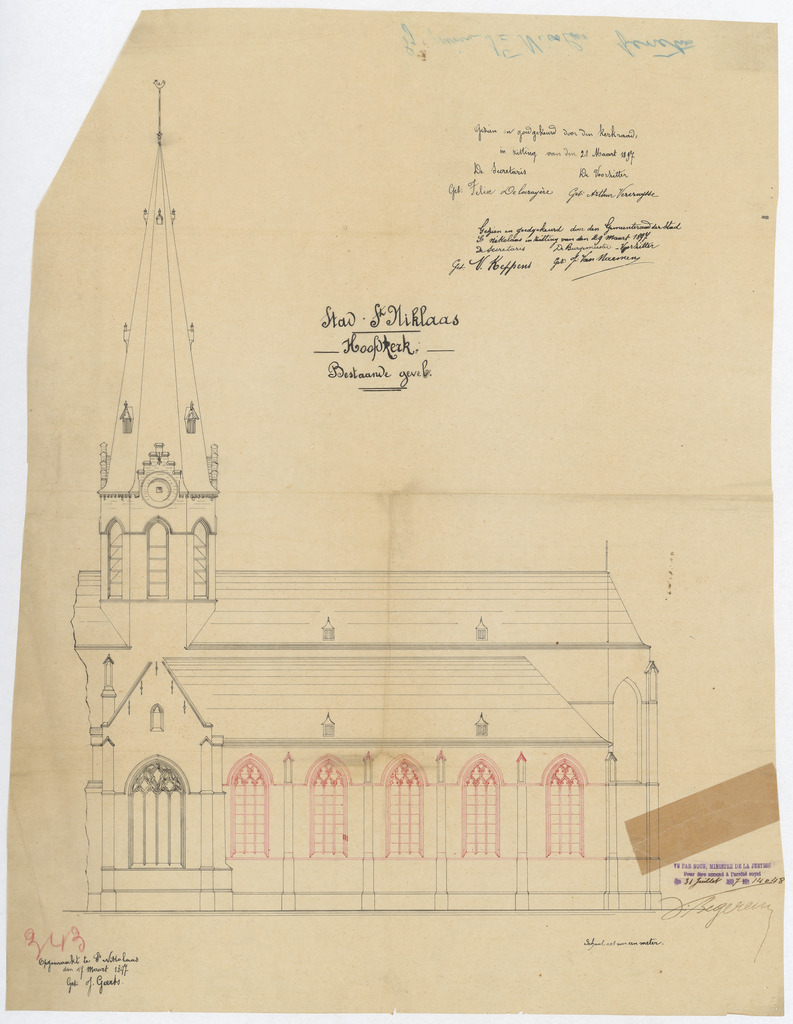 Gezien en goedgekeurd door den kerkraad,
in zitting van den 21 Maart 1897
De Secretaris De Voorzitter
Get. Felix Get. Arthur Verernysse
Gezien en goedgekeurd door den Gemeenteraad der Stad
St Nikolaas in zitting van den 29 maart 1897
De Secretaris De Burgmeester-Voorzitter
Get. V. Keppens Get. J. Van Naemen
Stad St Niklaas
Hoofdkerk.
Bestaande gevel.
VU PAR NOUS, MINISTRE DE LA JUSTICE
Pour être annexé à l'arrêté royal
du 31 Juillet 1897 No 14048
V. Begerem
Schaal
een meter.
343
Opgemaakt te St Nikolaas
den 17 Maart 1897
Get. J. Geerts.